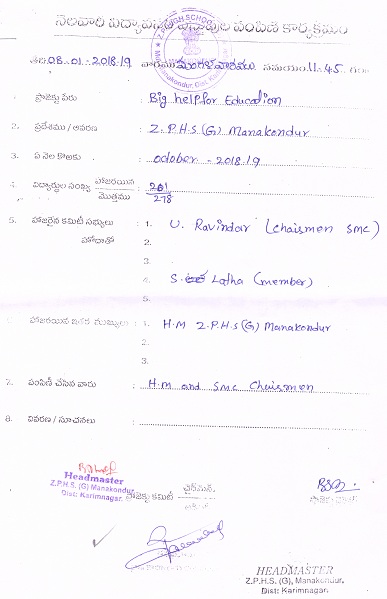 నెలవారి విద్యా వస్తువుల పంపిణి కార్యక్రమం
Z.P.HIGH SCHOOL
Manakondur, Dist. Karimnagar
తేది: 08.01.2018.19 వారము మంగళవారము సమయం: 11.45 గం
1. ప్రాజెక్టు పేరు : Big help for Education
2. ప్రదేశము / ఆవరణ : Z.P.H.S (G) Manakondur
3. ఏ నెల కొఱకు : october - 2018.19
4. విద్యార్థుల సంఖ్య హాజరయిన : 201
మొత్తము 278
5. హాజరైన కమిటీ సభ్యులు : 1. U. Ravindar (chaismen smc)
హోదాతో 2.
3.
4. S. Latha (member)
5.
6. హాజరయిన ఇతర ముఖ్యులు : 1. H.M Z.P.H.S (G) Manakondur
2.
3.
7. పంపిణి చేసిన వారు : H.M and smc Chaismen
8. వివరణ / సూచనలు :
Headmaster
Z.P.H.S. (G) Manakondur
Dist: Karimnagar.
ప్రాజెక్టు కమిటీ చైర్మెన్
HEADMASTER
Z.P.H.S. (G), Manakondur,
Dist: Karimnagar.